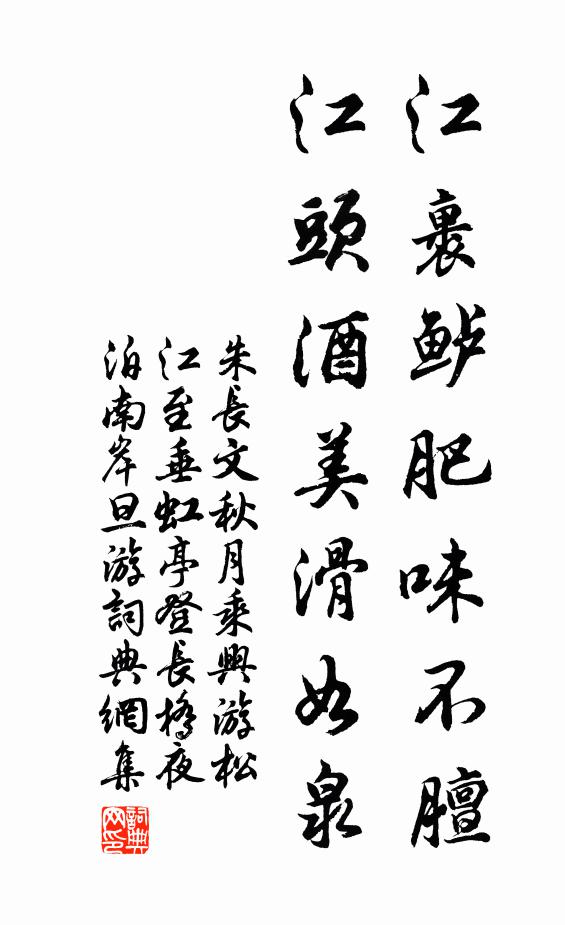 江裏鲈肥味不膻
江頭酒美滑如泉
朱長文秋月乘興游松
江至垂虹亭登長橋夜
泊南岸旦游詞典網集
詞典
网印